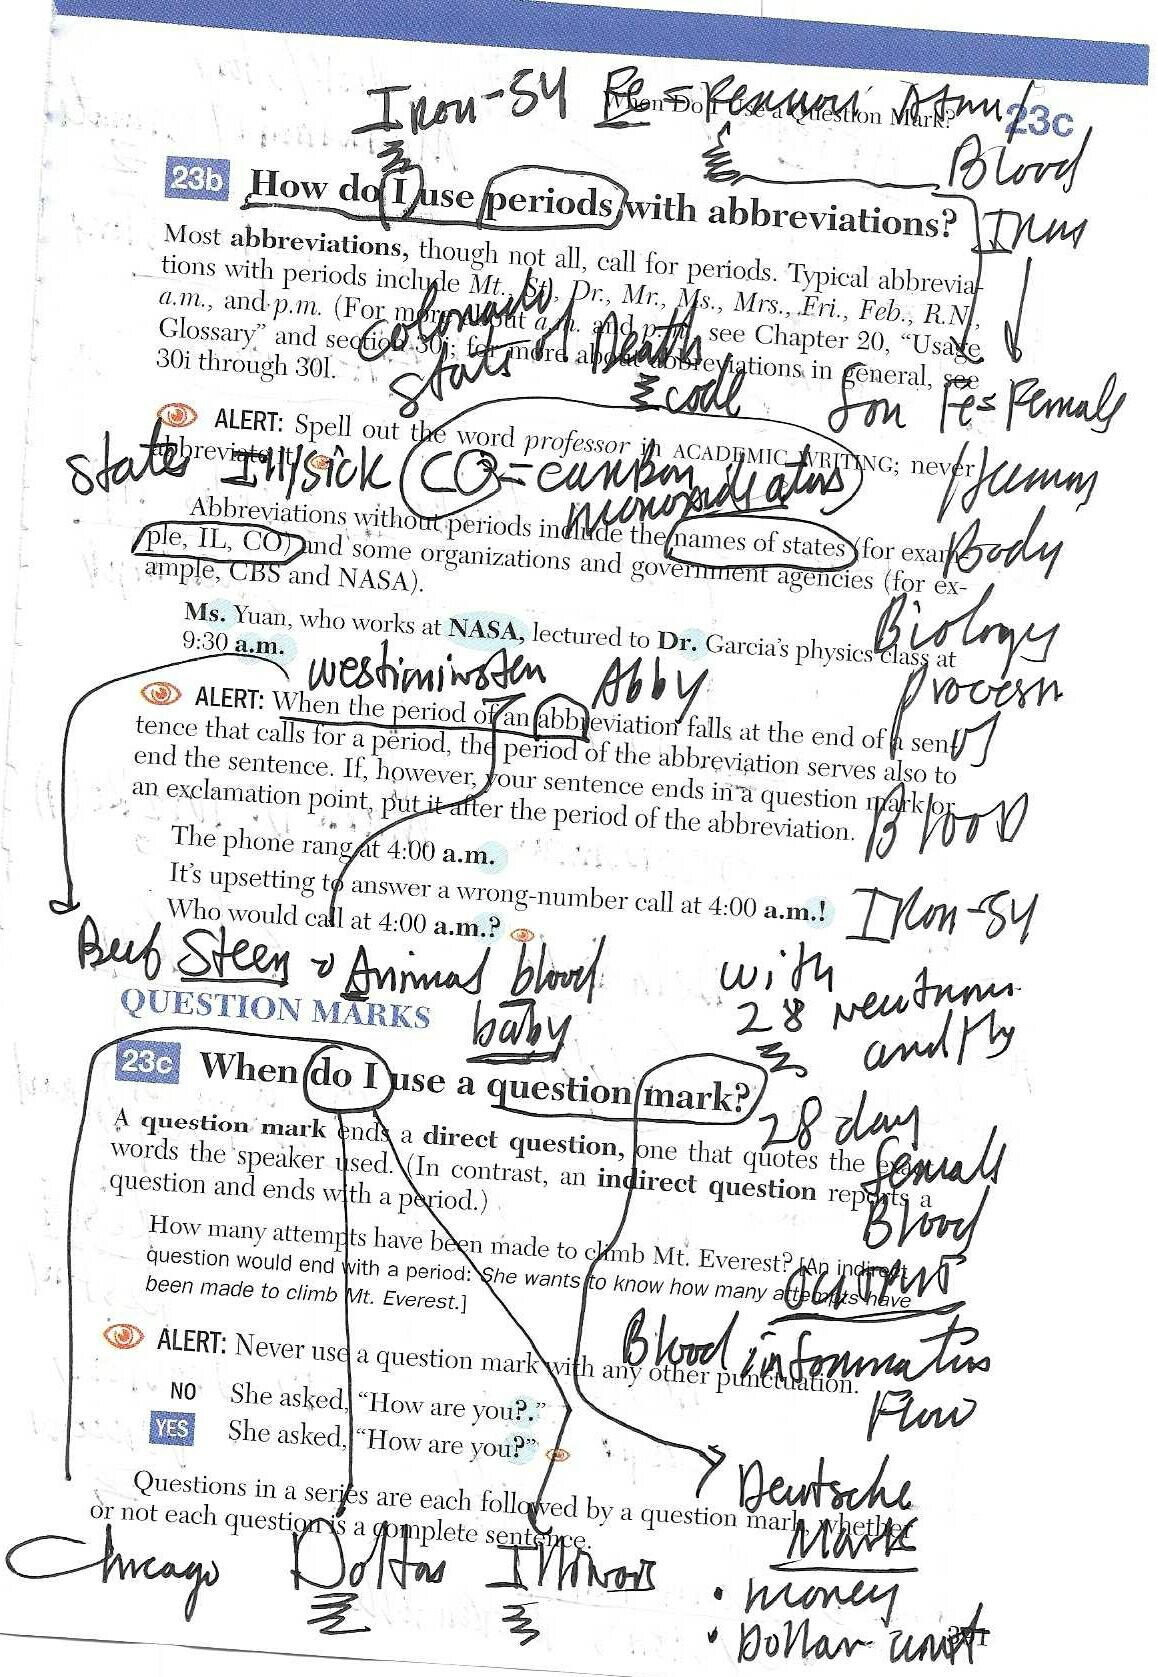 Iron-54 Fe = Femmon Atom/
When Do I Use a Question Mark?
23c
Blood
23b How do I use periods with abbreviations?
Irons
Most abbreviations, though not all, call for periods. Typical abbrevia-
tions with periods include Mt., St., Dr., Mr., Ms., Mrs., Fri., Feb., R.N.,
a.m., and p.m. (For more about a.m. and p.m., see Chapter 20, “Usage
Glossary” and section 30i; for more about abbreviations in general, see
30i through 30l.
Colorado
State of Death
code
Fe = Female
ALERT: Spell out the word professor in ACADEMIC WRITING; never
abbreviate it.
States Ill/sick CO = carbon
monoxide
Human
Body
Abbreviations without periods include the names of states (for exam-
ple, IL, CO) and some organizations and government agencies (for ex-
ample, CBS and NASA).
Biology
process
of
Blood
Ms. Yuan, who works at NASA, lectured to Dr. Garcia’s physics class at
9:30 a.m.
Westiminster Abby
ALERT: When the period of an abbreviation falls at the end of a sen-
tence that calls for a period, the period of the abbreviation serves also to
end the sentence. If, however, your sentence ends in a question mark or
an exclamation point, put it after the period of the abbreviation.
The phone rang at 4:00 a.m.
It’s upsetting to answer a wrong-number call at 4:00 a.m.!
Who would call at 4:00 a.m.?
Iron-54
with
28 neutrons
Beef Steer Animal blood
baby
QUESTION MARKS
23c When do I use a question mark?
28 day
female
Blood
output
Blood information
Flow
A question mark ends a direct question, one that quotes the exact
words the speaker used. (In contrast, an indirect question reports a
question and ends with a period.)
How many attempts have been made to climb Mt. Everest? [An indirect
question would end with a period: She wants to know how many attempts have
been made to climb Mt. Everest.]
ALERT: Never use a question mark with any other punctuation.
NO She asked, “How are you?.”
YES She asked, “How are you?”
Questions in a series are each followed by a question mark, whether
or not each question is a complete sentence.
Deutsche
Mark
• money
• Dollar unit
Chicago Doltas Illinois
391